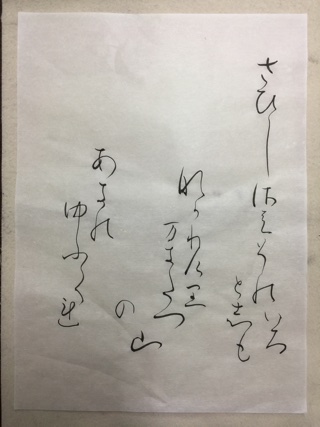 さひしさはそのいろ
としも
なかりけり
まきたつ
山
の
あきの
ゆふくれ